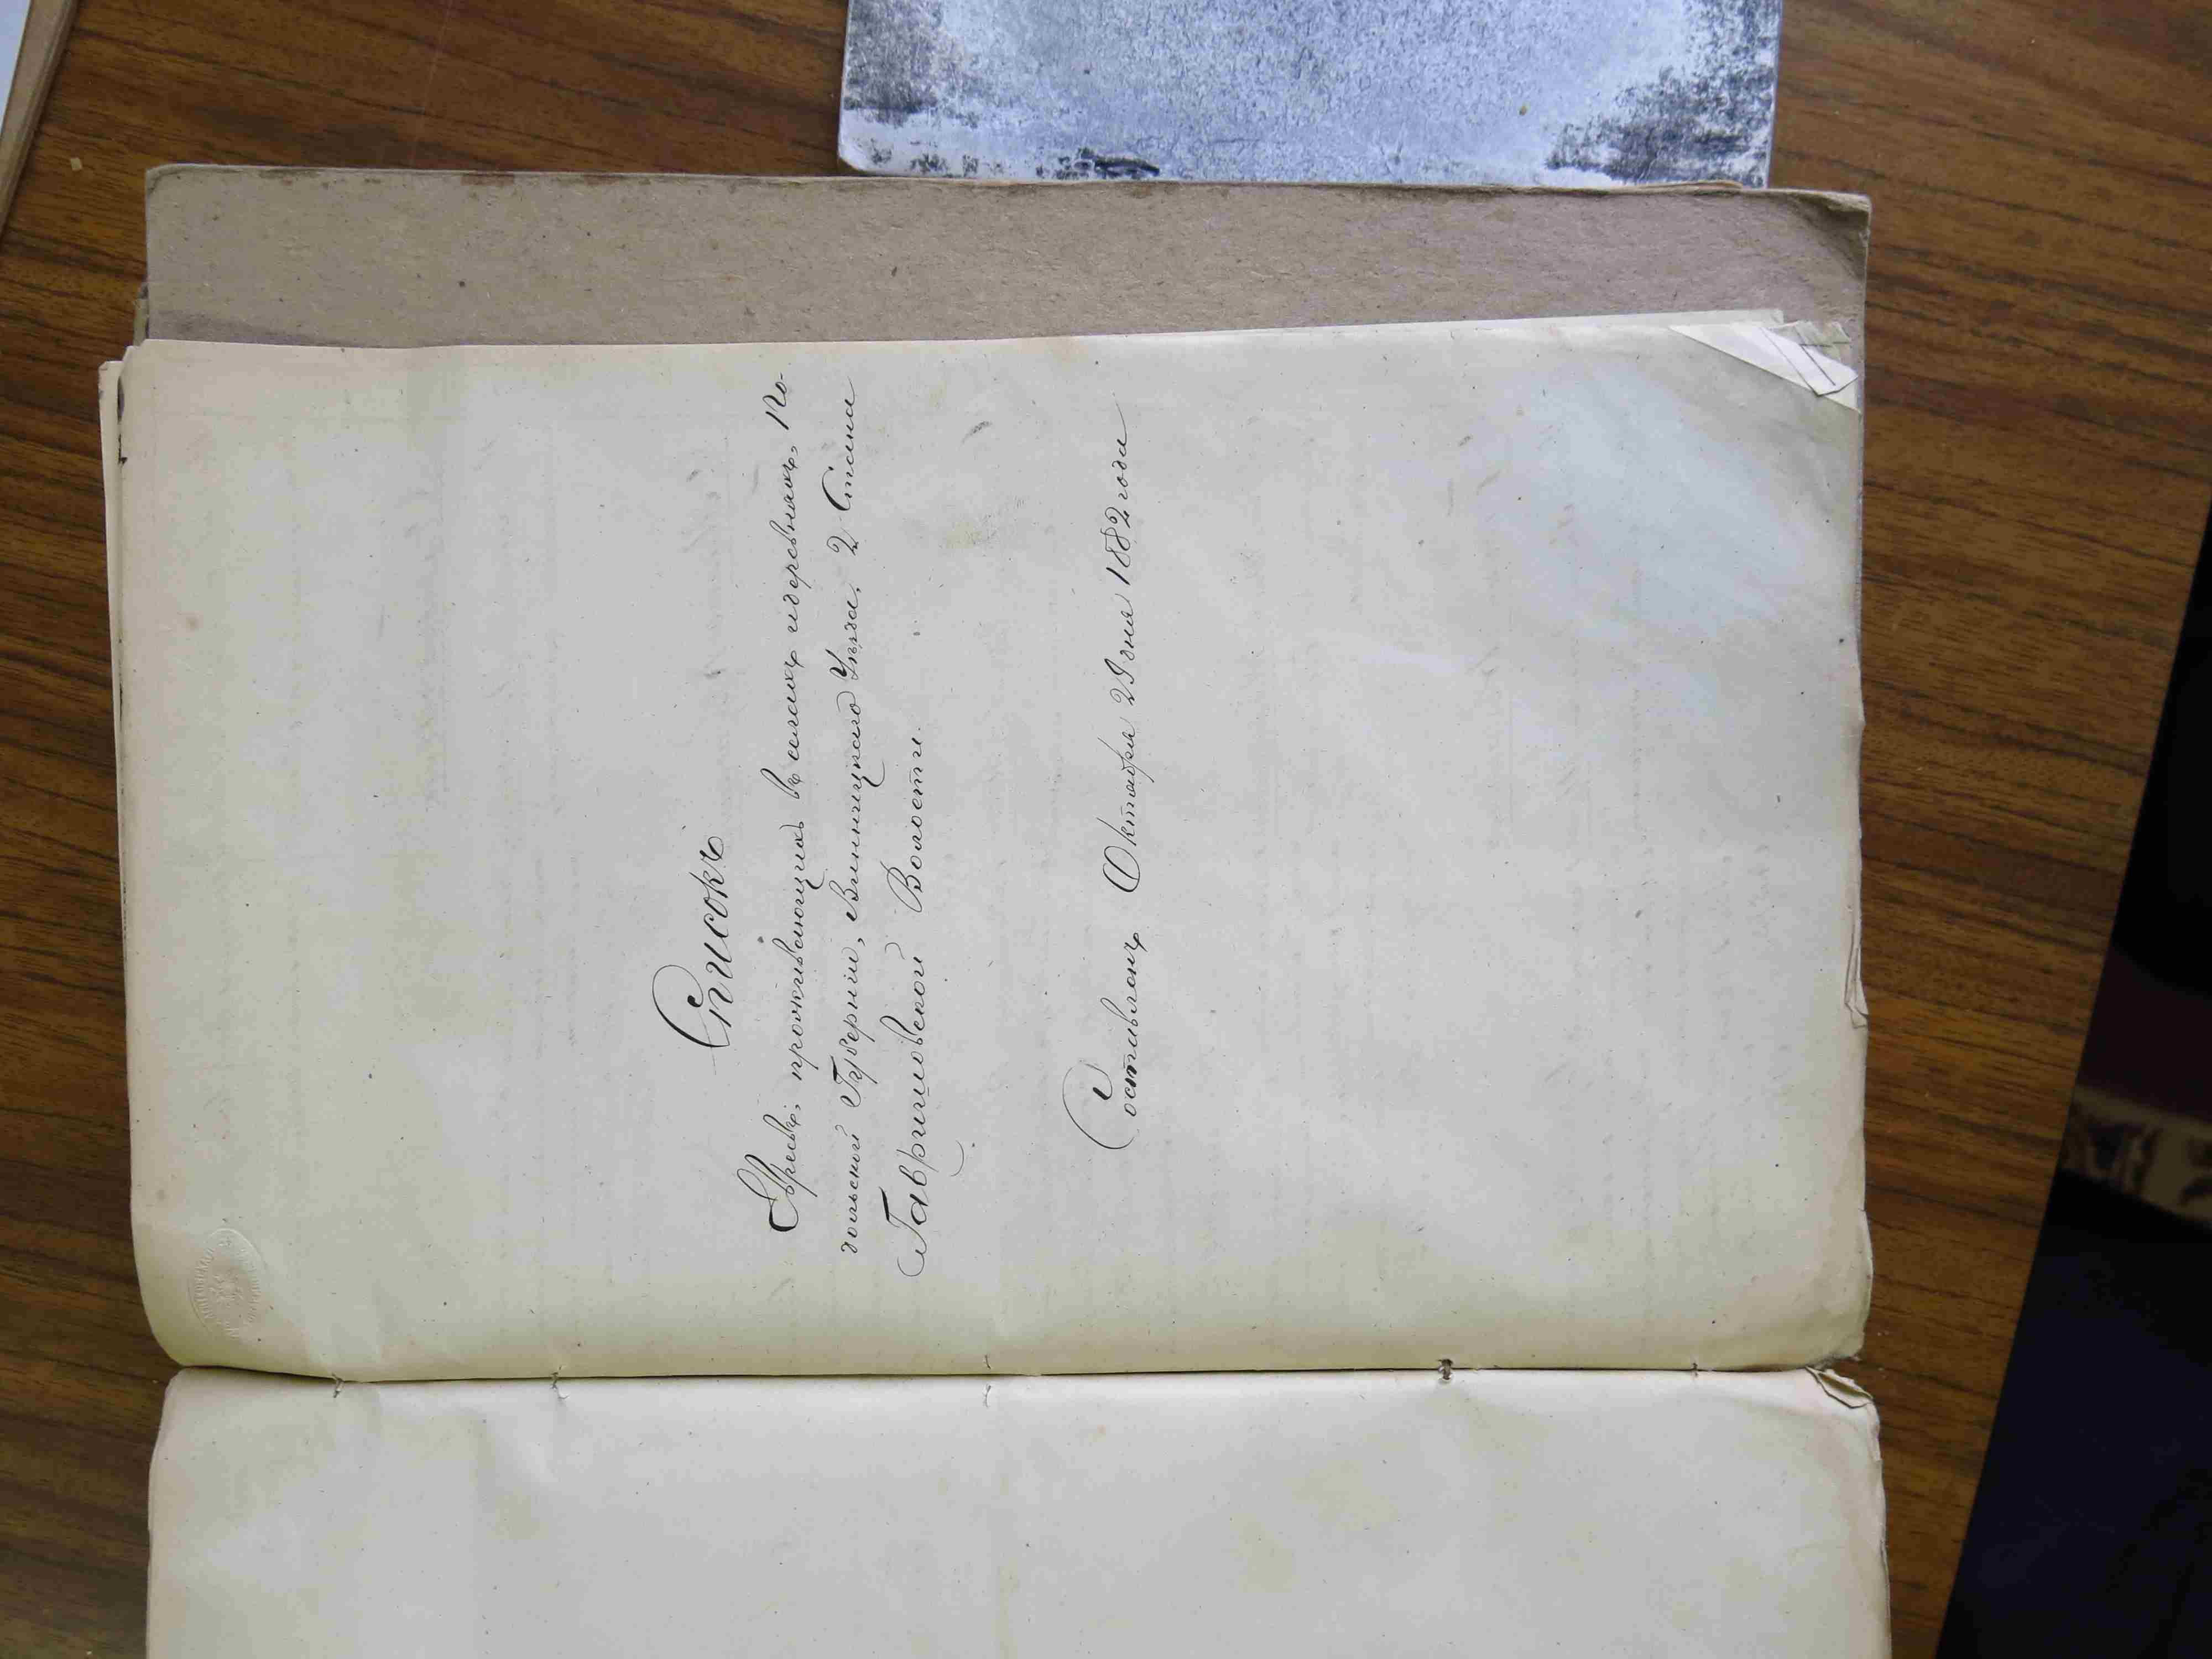 Списокъ
Евреевъ, проживающихъ въ селахъ и деревняхъ, По-
дольской Губерніи, Винницкаго Уѣзда, 2 Стана
Гавришовской Волости.
Составленъ Октября 29 дня 1882 года